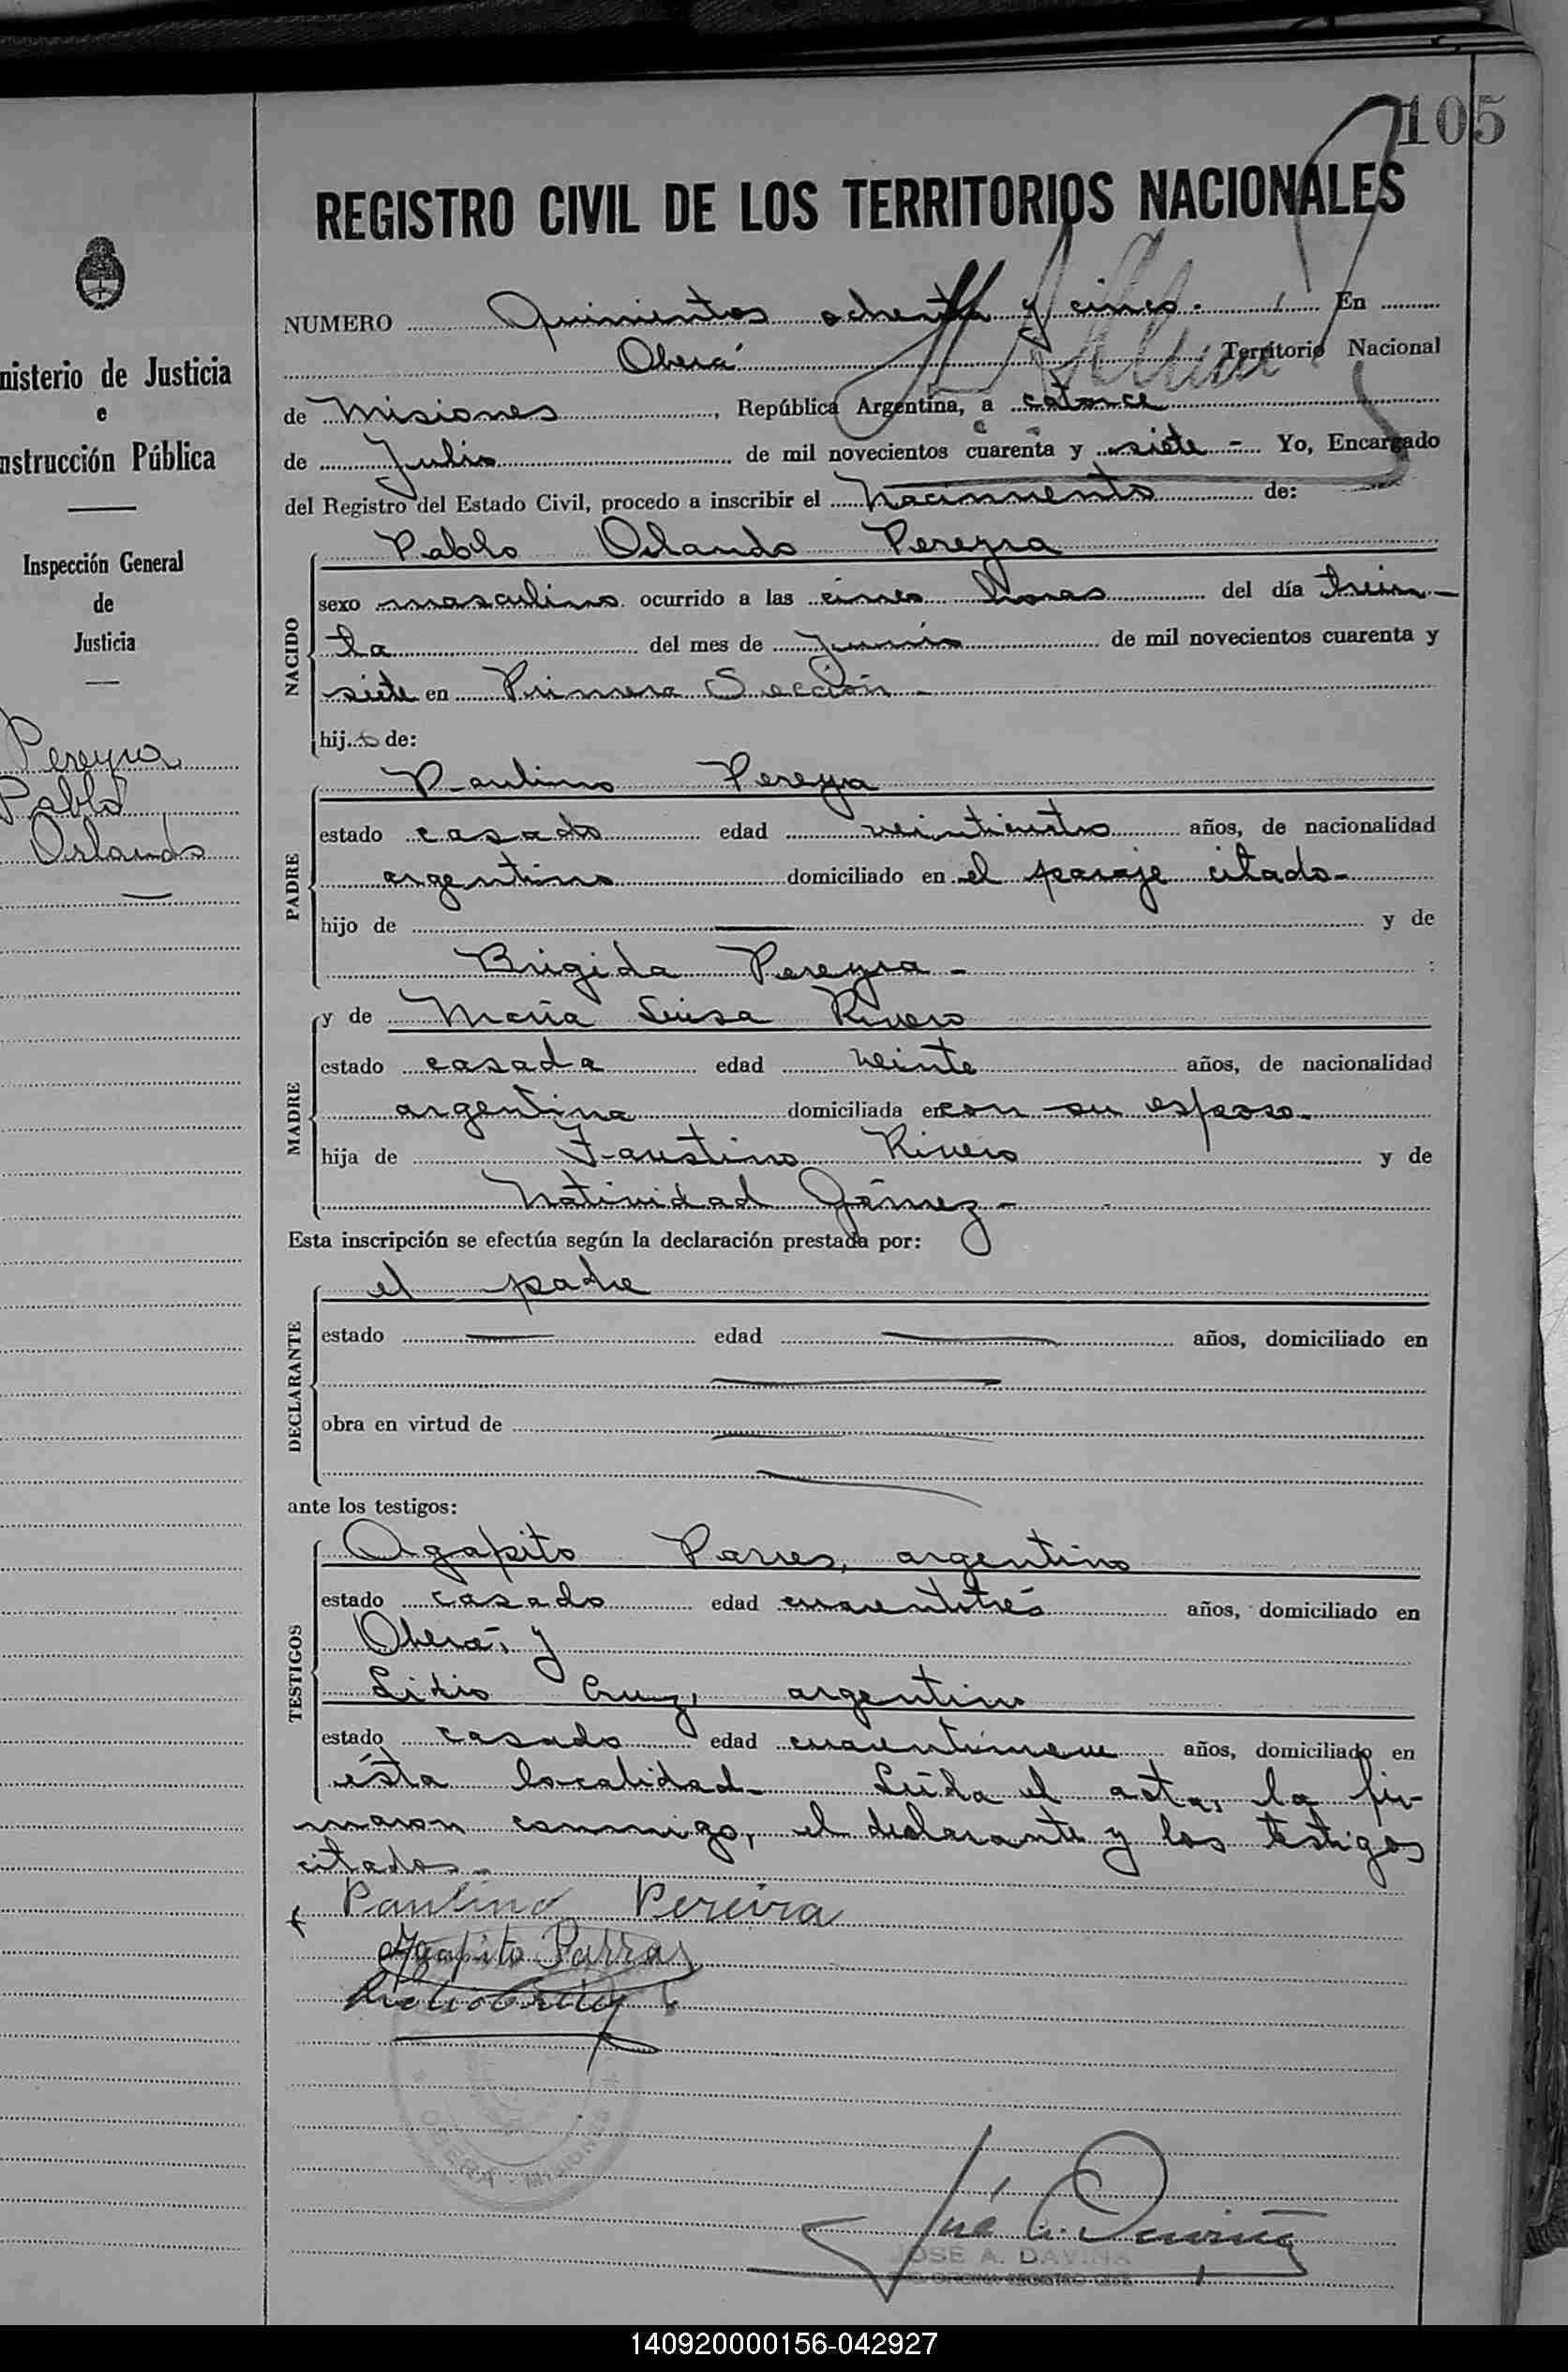 105
REGISTRO CIVIL DE LOS TERRITORIOS NACIONALES
NUMERO Quinientos ochenta y cinco. En
Oberá Territorio Nacional
de Misiones, República Argentina, a catorce
de Julio de mil novecientos cuarenta y siete - Yo, Encargado
del Registro del Estado Civil, procedo a inscribir el nacimiento de:
Pablo Orlando Pereyra
NACIDO
sexo masculino ocurrido a las cinco horas del día trein-
ta del mes de Junio de mil novecientos cuarenta y
siete en Primera Sección -
hijo de:
Paulino Pereyra
PADRE
estado casado edad años, de nacionalidad
argentino domiciliado en el paraje citado-
hijo de — y de
Brigida Pereyra -
y de María Luisa Rivero
MADRE
estado casada edad veinte años, de nacionalidad
argentina domiciliada en con su esposo-
hija de Faustino Rivero y de
Natividad Gómez -
Esta inscripción se efectúa según la declaración prestada por:
el padre
DECLARANTE
estado — edad — años, domiciliado en
obra en virtud de
ante los testigos:
Agapito Parres, argentino
TESTIGOS
estado casado edad cuarentitrés años, domiciliado en
Oberá, y
Lidio Cruz, argentino
estado casado edad cuarentinueve años, domiciliado en
ésta localidad- Leída el acta, la fir-
maron conmigo, el declarante y los testigos
citados-
Paulino Pereira
Agapito Parras
OBERA - MISIONES
José A. Daviña
JOSE A. DAVIÑA
nisterio de Justicia
e
nstrucción Pública
Inspección General
de
Justicia
Pereyra
Pablo
Orlando
140920000156-042927